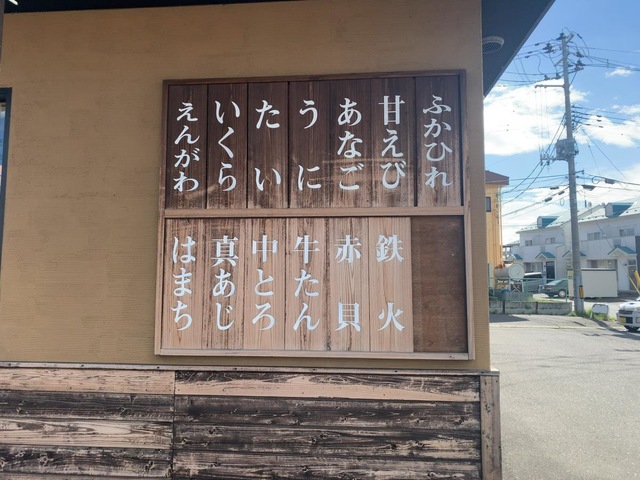 ふかひれ
甘えび
あなご
うに
たい
いくら
えんがわ
鉄火
赤貝
牛たん
中とろ
真あじ
はまち